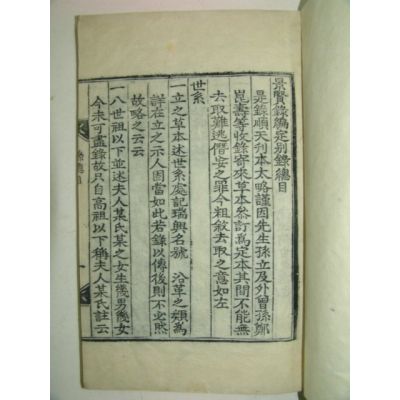 景賢錄編定別錄總目
是錄順天刊本太略謹因先生孫立及外曾孫鄭
崑壽等收錄寄來草本叅訂爲定本其間不能無
去取難逃僭妄之罪今粗敘去取之意如左
世系
一立之草本述世系處記瑞興名號 沿革之類爲
詳在立之示人固當如此若錄以傳後則不必然
故略之云云
一八世祖以下並述夫人某氏某之女生幾男幾女
今未可盡錄故只自高祖以下稱夫人某氏註云